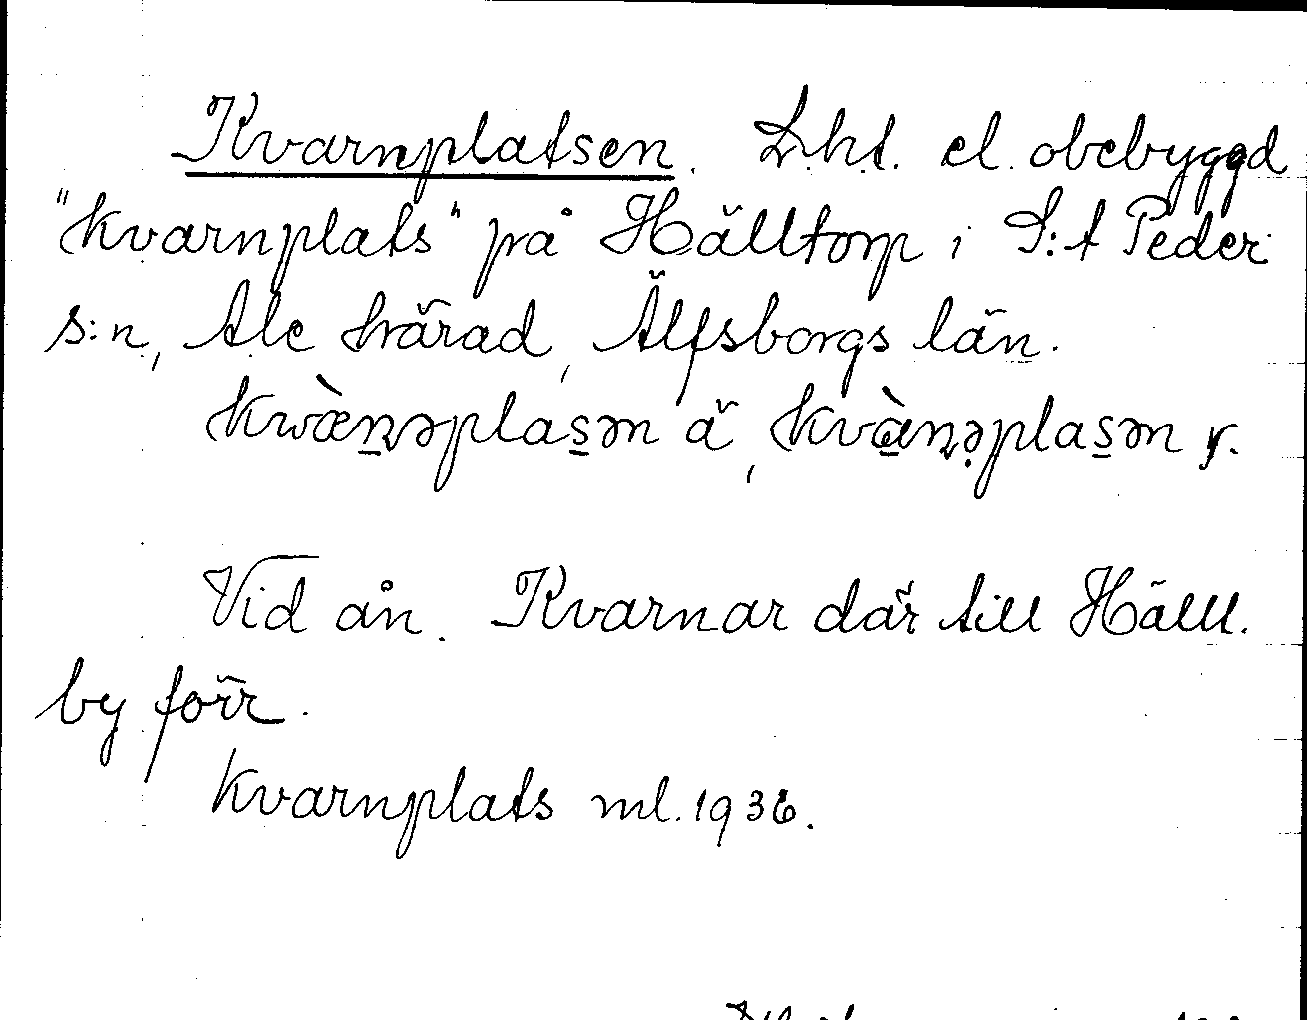 Kvarnplatsen. L.h.t. el. obebyggd
"kvarnplats" på Hälltorp i S:t Peder
s:n, Ale härad, Älfsborgs län.
kwæ̀n̠əplas̠ən ä, kvàn̠əplas̠ən y.
Vid ån. Kvarnar där till Häll.
by förr.
Kvarnplats ml. 1936.